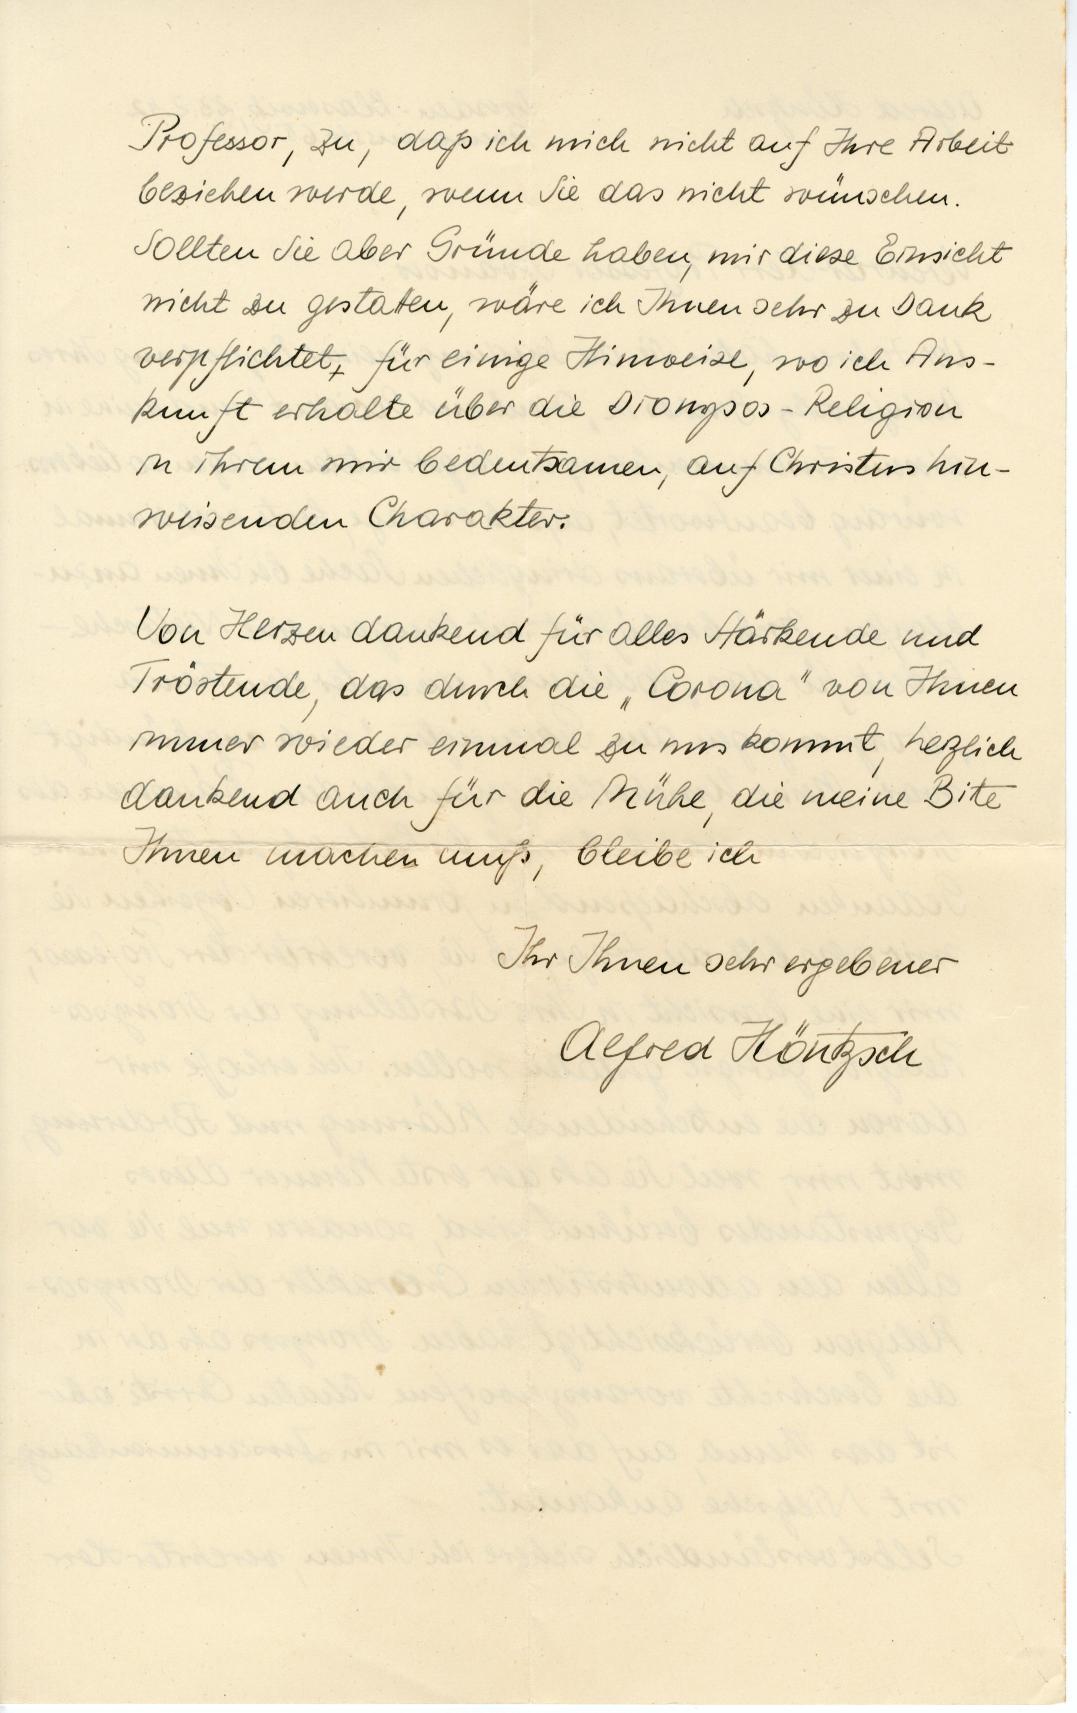 Professor, zu, daß ich mich nicht auf Ihre Arbeit
beziehen werde, wenn Sie das nicht wünschen.
Sollten Sie aber Gründe haben, mir diese Einsicht
nicht zu gestatten, wäre ich Ihnen sehr zu Dank
verpflichtet, für einige Hinweise, wo ich Aus-
kunft erhalte über die Dionysos-Religion
in ihrem mir bedeutsamen, auf Christus hin-
weisenden Charakter.
Von Herzen dankend für alles Stärkende und
Tröstende, das durch die „Corona" von Ihnen
immer wieder einmal zu uns kommt, herzlich
dankend auch für die Mühe, die meine Bitte
Ihnen machen muß, bleibe ich
Ihr Ihnen sehr ergebener
Alfred Höntzsch